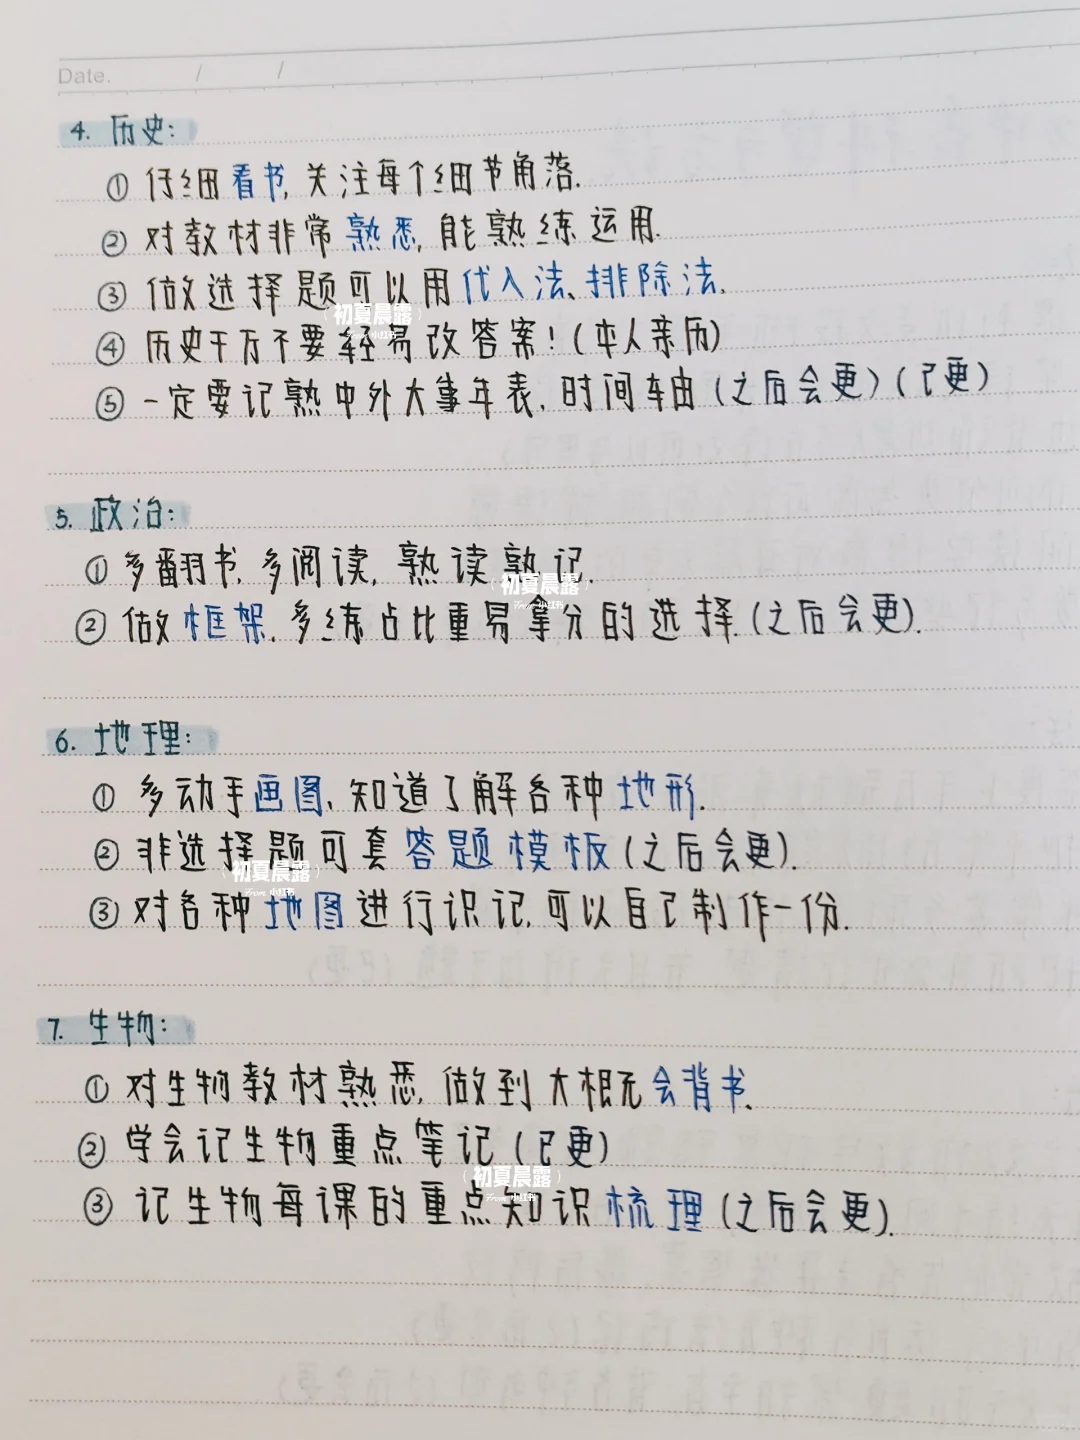 Date. / /
4. 历史:
① 仔细看书, 关注每个细节角落.
② 对教材非常熟悉, 能熟练运用.
③ 做选择题可以用代入法、排除法.
④ 历史千万不要轻易改答案! (本人亲历)
⑤ 一定要记熟中外大事年表, 时间车由 (之后会更) (已更)
5. 政治:
① 多翻书, 多阅读, 熟读熟记.
② 做框架, 多练占比重易拿分的选择. (之后会更).
6. 地理:
① 多动手画图, 知道了解各种地形.
② 非选择题可套答题模板 (之后会更).
③ 对各种地图进行识记, 可以自己制作一份.
7. 生物:
① 对生物教材熟悉, 做到大概无会背书.
② 学会记生物重点笔记 (已更)
③ 记生物每课的重点知识梳理 (之后会更).
初夏晨露
From 小红书
初夏晨露
From 小红书
初夏晨露
From 小红书
初夏晨露
From 小红书